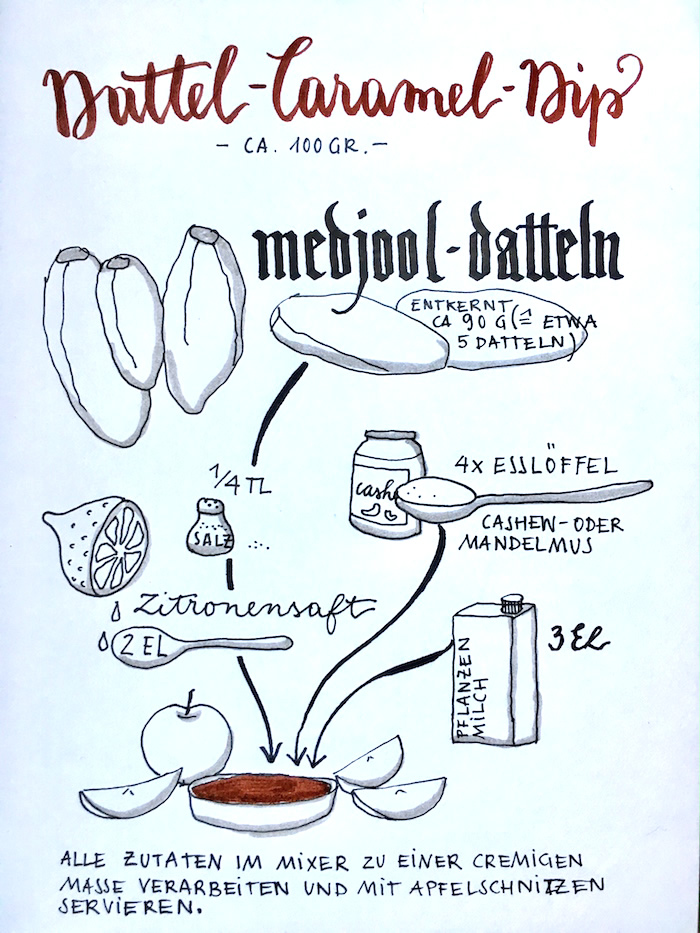 Dattel-Caramel-Dip
- CA. 100 GR. -
medjool-datteln
ENTKERNT,
CA 90 G (≙ ETWA
5 DATTELN)
1/4 TL
SALZ
cashe
4x ESSLÖFFEL
CASHEW- ODER
MANDELMUS
Zitronensaft
2 EL
PFLANZEN
MILCH
3 EL
ALLE ZUTATEN IM MIXER ZU EINER CREMIGEN
MASSE VERARBEITEN UND MIT APFELSCHNITZEN
SERVIEREN.